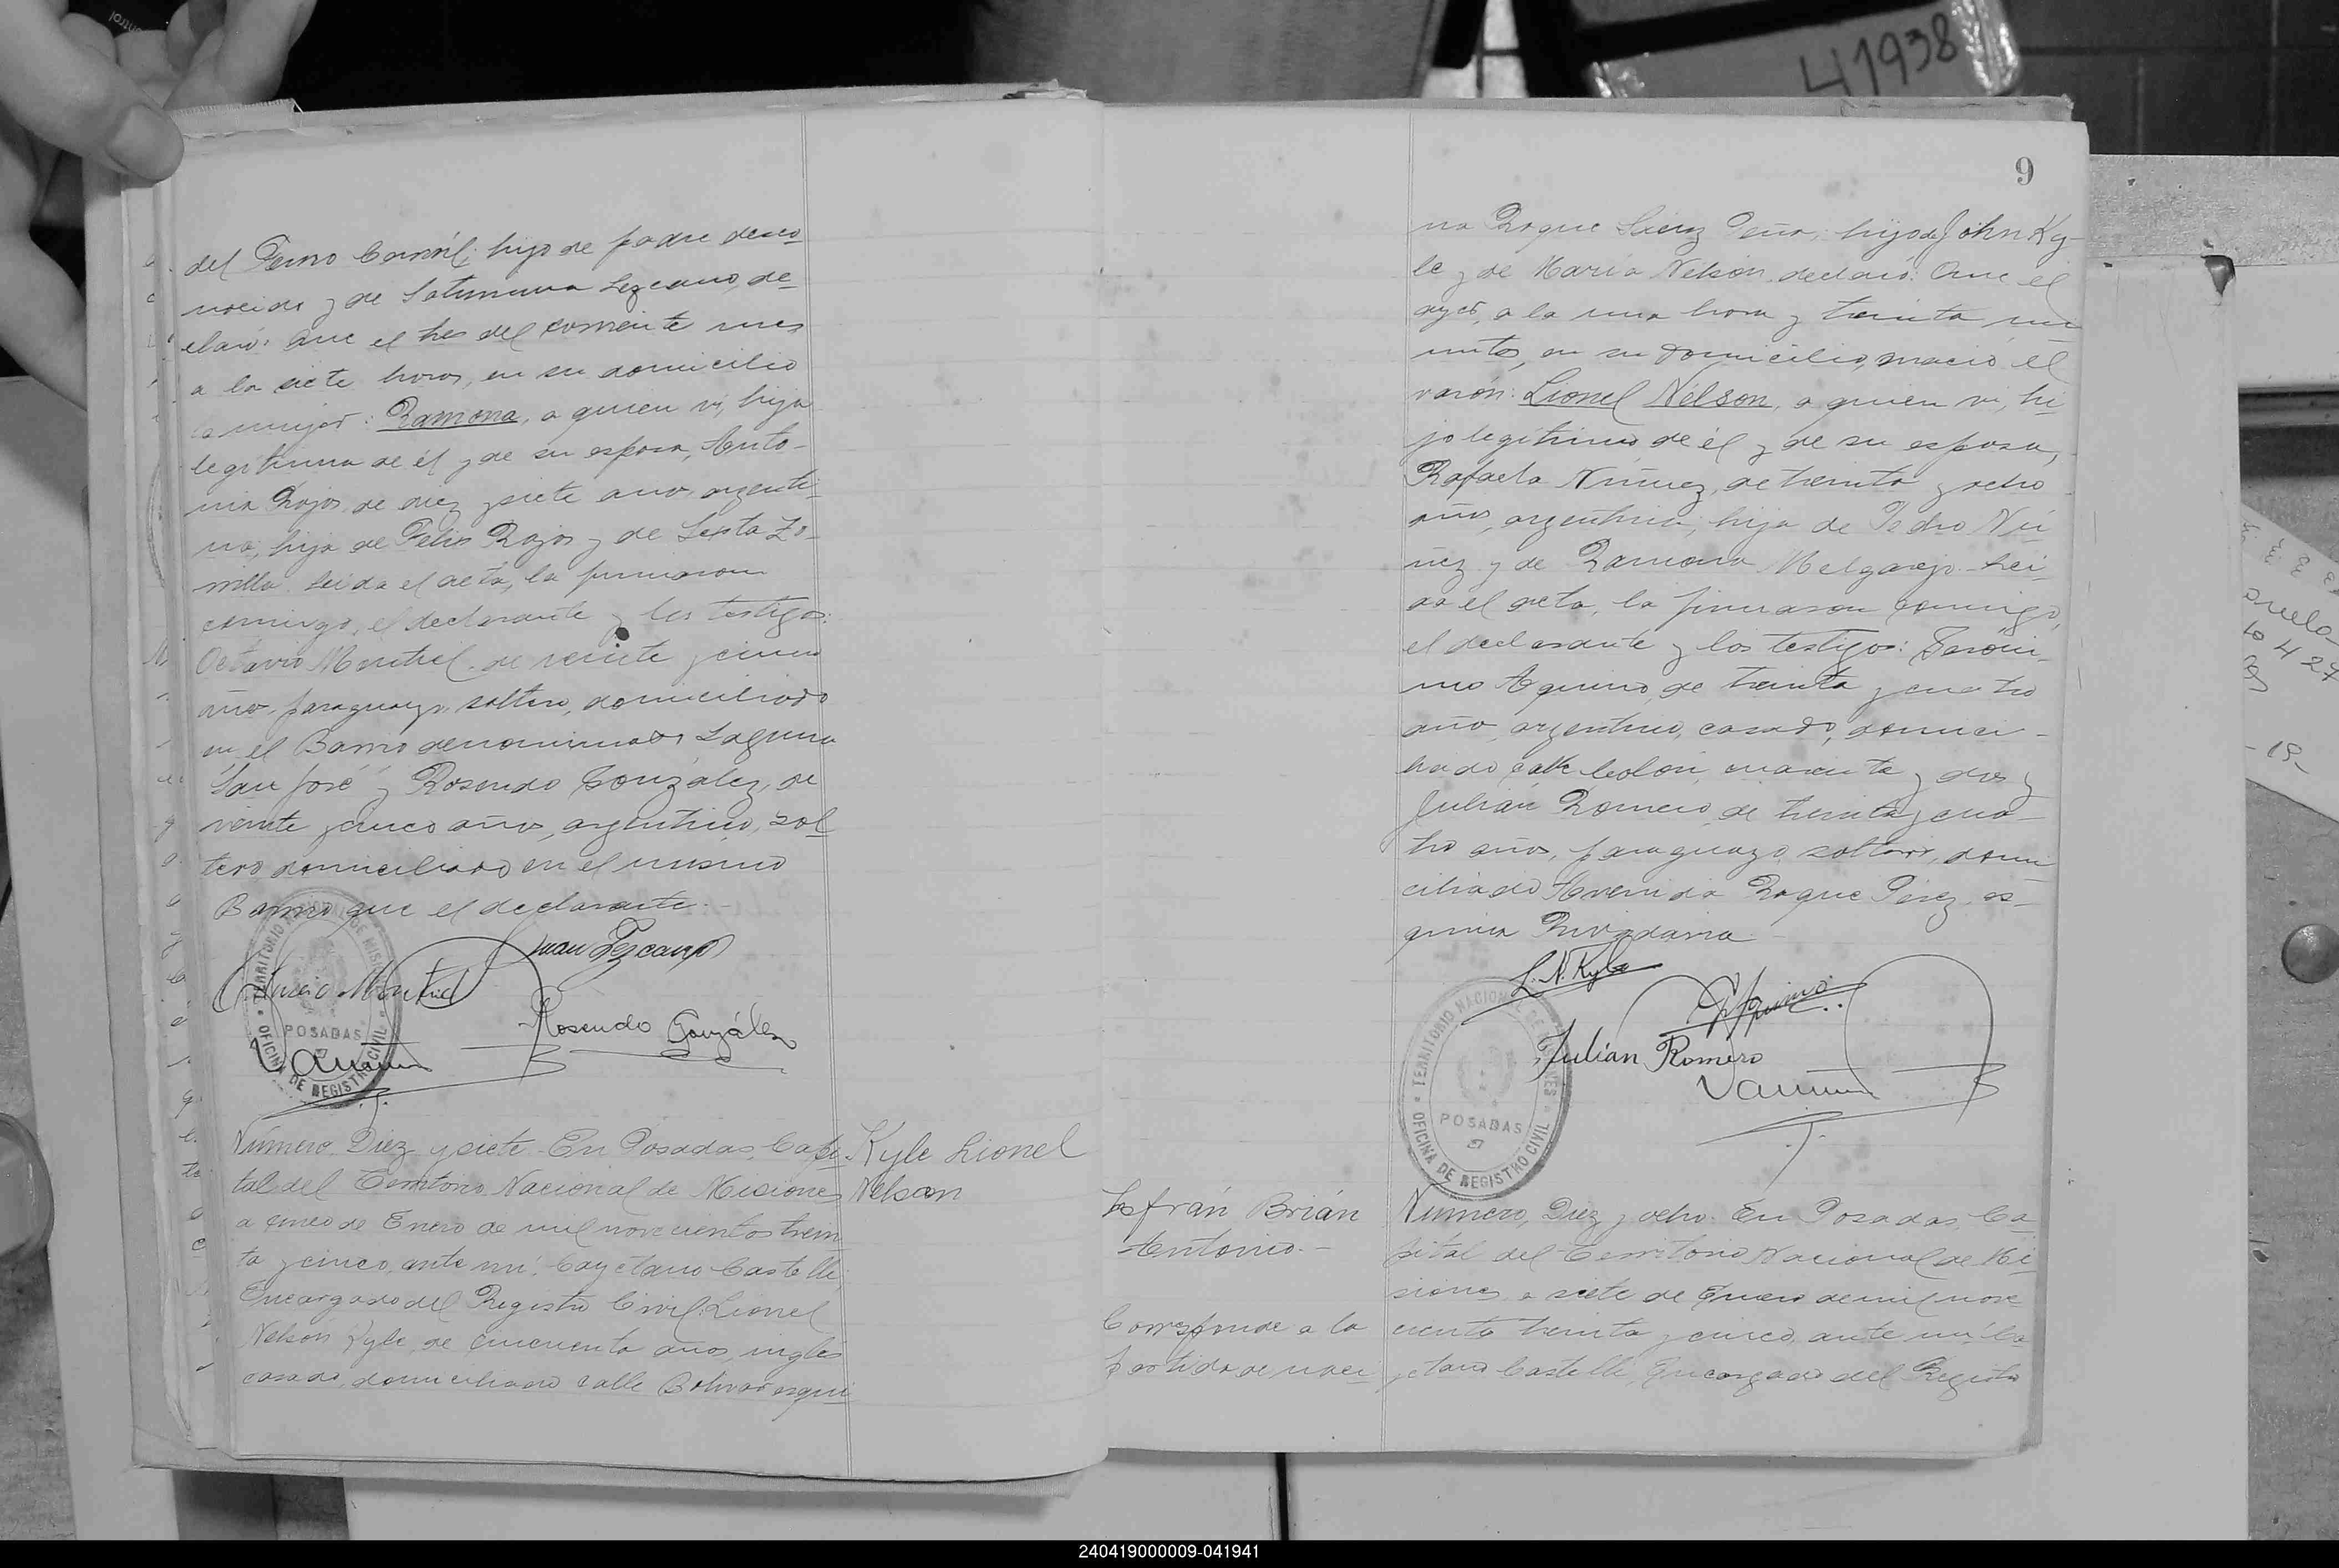 41938
del Ferro Carril; hijo de padre desco-
nocido y de Saturnina Lezcano, de-
claró: Que el tres del corriente mes
a la siete horas, en su domicilio
la mujer: Ramona, a quien vi, hija
legítima de él y de su esposa, Anto-
nia Rojas, de diez y siete años, argenti-
na, hija de Felix Rojas y de Sixta Zo-
rrilla. Leida el acta, la firmaron
conmigo, el declarante y los testigos:
Octavio Montiel, de veinte y cinco
años, paraguayo, soltero, domiciliado
en el Barrio denominado Laguna
"San José" y Rosendo González, de
veinte y cinco años, argentino, sol-
tero, domiciliado en el mismo
Barrio que el declarante.-
Juan Lezcano
Montiel
Rosendo González
TERRITORIO NACIONAL DE MISIONES
POSADAS
OFICINA DE REGISTRO CIVIL
Número Diez y siete. En Posadas, Capi-
tal del Territorio Nacional de Misiones
a cinco de Enero de mil novecientos trein
ta y cinco, ante mí, Cayetano Castelli,
Encargado del Registro Civil: Lionel
Nelson Kyle, de cincuenta años, inglés
casado, domiciliado calle Bolivar esqui-
Kyle Lionel
Nelson
9
na Roque Sáenz Peña; hijo de John Ky-
le y de María Nelson, declaró: Que el
ayer, a la una hora y treinta mi
nutos, en su domicilio, nació el
varón: Lionel Nelson, a quien vi, hi-
jo legítimo de él y de su esposa,
Rafaela Núñez, de treinta y ocho
años, argentina, hija de Pedro Nú-
ñez y de Ramona Melgarejo. Leí-
da el acta, la firmaron conmigo,
el declarante y los testigos: Jeróni-
mo Aquino, de treinta y cuatro
años, argentino, casado, domici-
liado calle Colón, cuarenta y dos y
Julián Romero, de treinta y cua-
tro años, paraguayo, soltero, domi
ciliado Avenida Roque Pérez, es-
quina Rivadavia.-
L. N. Kyle
Aquino
Julian Romero
TERRITORIO NACIONAL DE MISIONES
POSADAS
OFICINA DE REGISTRO CIVIL
Insfrán Brián
Antonio.-
Corresponde a la
partida de naci-
Número, Diez y ocho. En Posadas, Ca-
pital del Territorio Nacional de Mi-
siones a siete de Enero de mil nove-
cientos treinta y cinco, ante mí, Ca-
yetano Castelli, Encargado del Registro
240419000009-041941